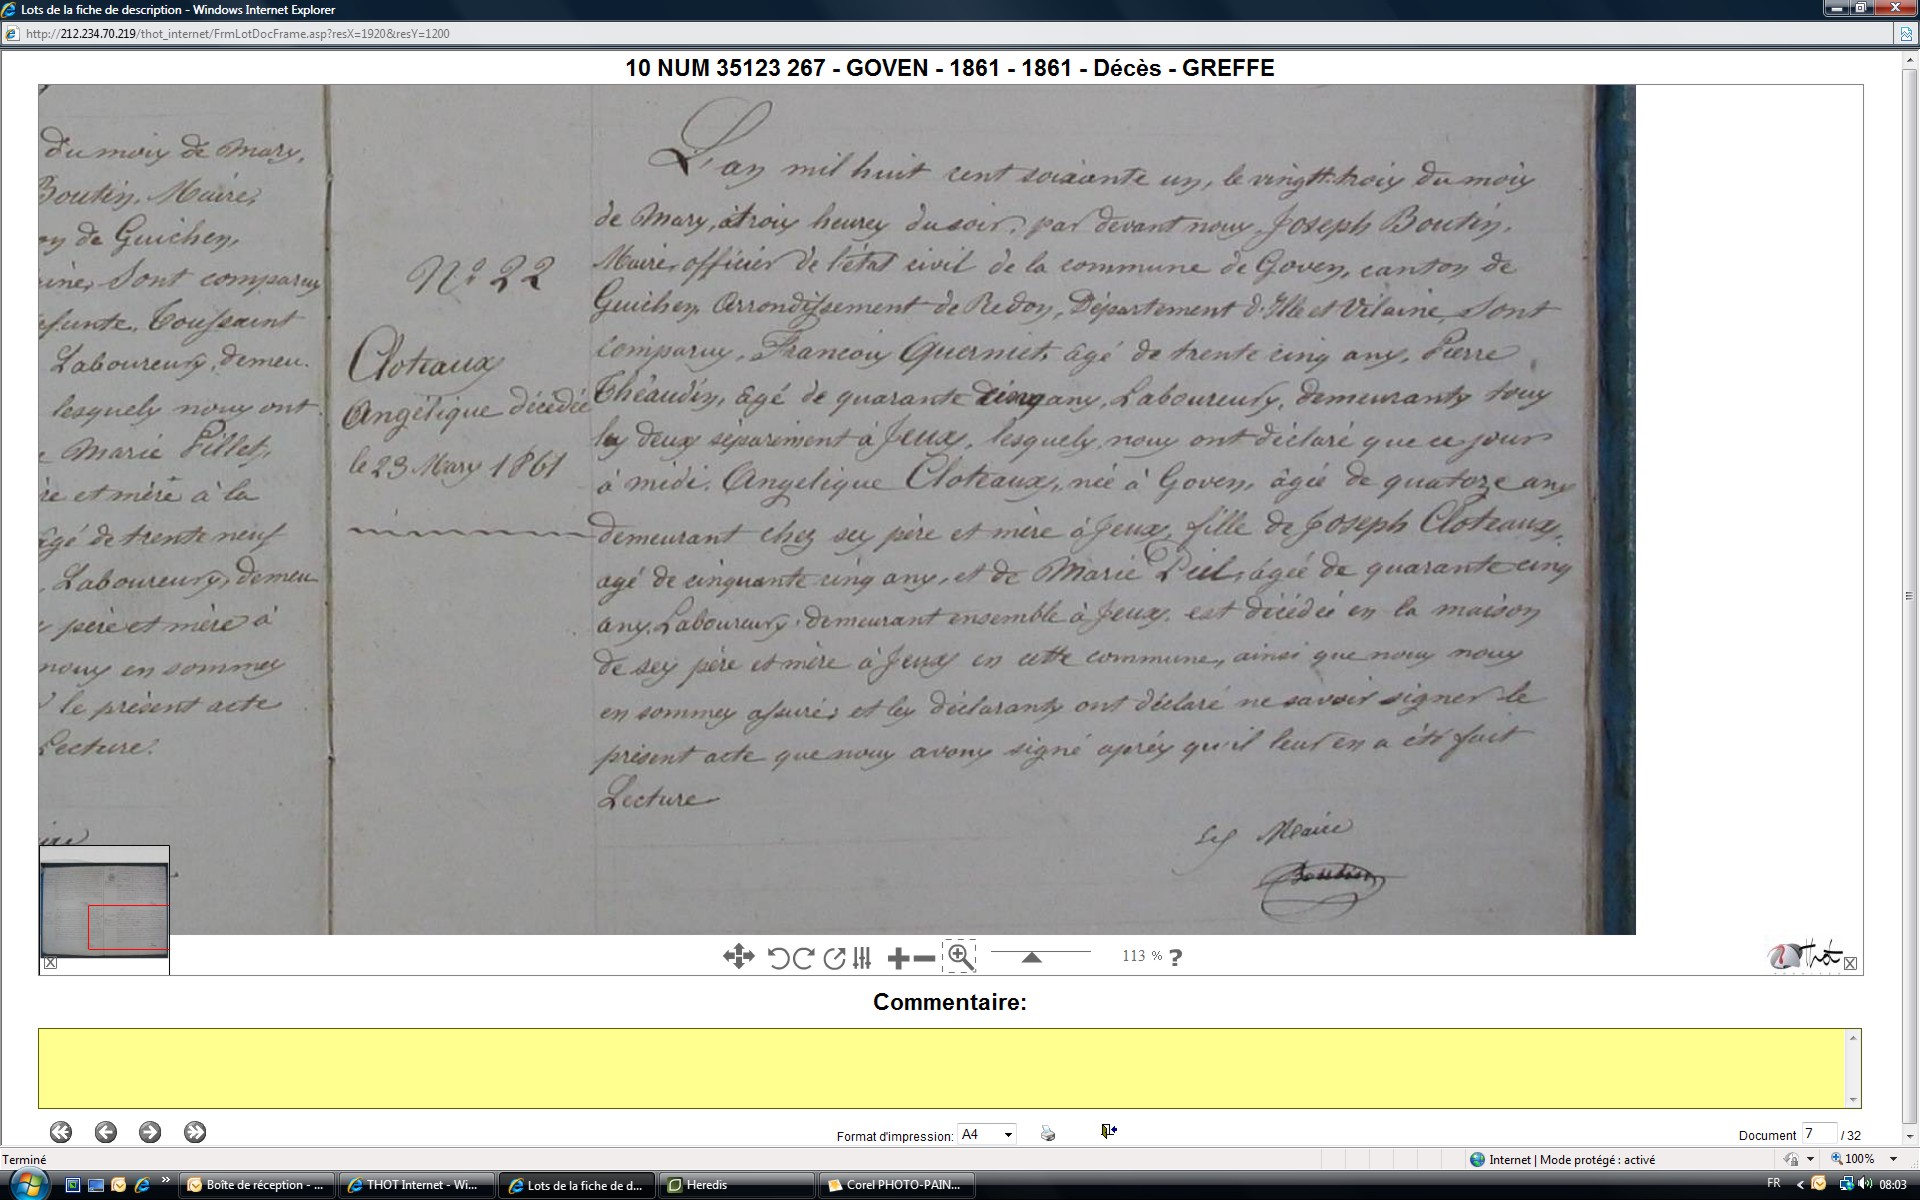 Lots de la fiche de description - Windows Internet Explorer
http://212.234.70.219/thot_internet/FrmLotDocFrame.asp?resX=1920&resY=1200
10 NUM 35123 267 - GOVEN - 1861 - 1861 - Décès - GREFFE
du mois de Mars,
Boutin, Maire,
de Guichen,
Sont comparus
Toussaint
Laboureurs, demeu-
lesquels nous ont
Marie Pillet,
et mère à la
âgé de trente neuf
Laboureurs, demeu
père et mère à
nous en sommes
le présent acte
Lecture.
N° 22
Cloteaux
Angélique décédée
le 23 Mars 1861
L'an mil huit cent soixante un, le vingt-trois du mois
de Mars, à trois heures du soir, par devant nous, Joseph Boutin,
Maire, officier de l'état civil de la commune de Goven, canton de
Guichen, Arrondissement de Redon, Département d'Ille et Vilaine, Sont
comparus, François Guermet, âgé de trente cinq ans, Pierre
Théaudin, âgé de quarante cinq ans, Laboureurs, demeurants tous
les deux séparément à Jeux, lesquels nous ont déclaré que ce jour
à midi, Angelique Cloteaux, née à Goven, âgée de quatorze ans
demeurant chez ses père et mère à Jeux, fille de Joseph Cloteaux,
agé de cinquante cinq ans, et de Marie Piel, âgée de quarante cinq
ans, Laboureurs, demeurant ensemble à Jeux, est décédée en la maison
de ses père et mère à Jeux en cette commune, ainsi que nous nous
en sommes assuré, et les déclarants ont déclaré ne savoir signer le
présent acte que nous avons signé après qu'il leur en a été fait
Lecture
Maire
Boutin
113 % ?
Thot
Commentaire:
Format d'impression: A4
Document 7 / 32
Terminé
Internet | Mode protégé : activé
100%
Boîte de réception - ...
THOT Internet - Wi...
Lots de la fiche de d...
Heredis
Corel PHOTO-PAIN...
FR
08:03